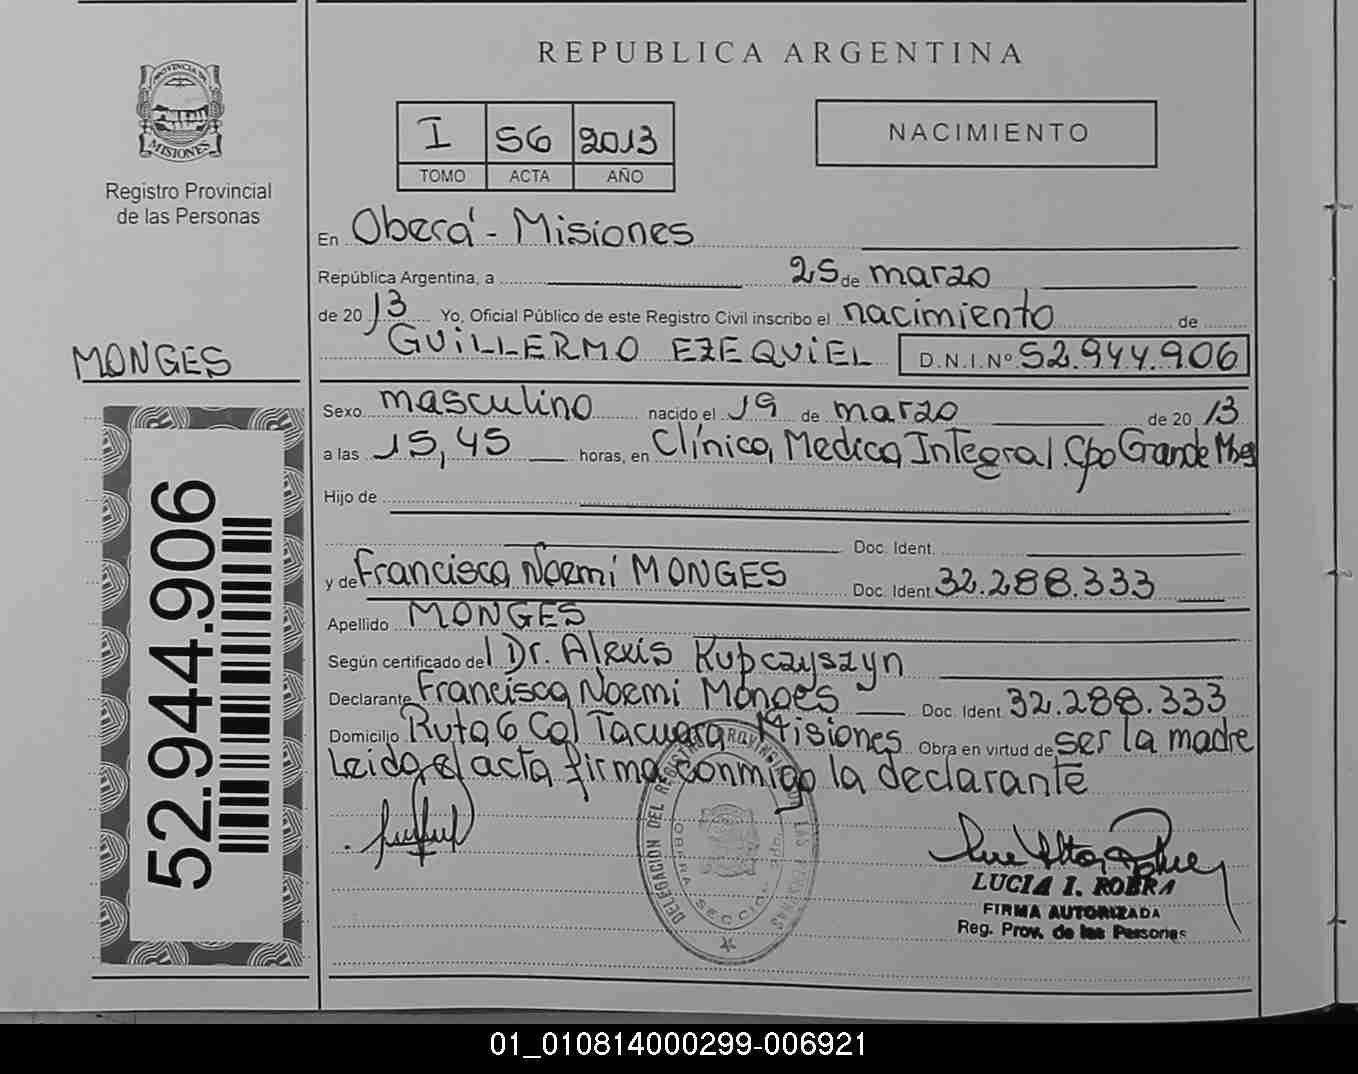 REPUBLICA ARGENTINA
PROVINCIA DE
MISIONES
Registro Provincial
de las Personas
I 56 2013
TOMO ACTA AÑO
NACIMIENTO
En Oberá - Misiones
República Argentina, a 25 de marzo
de 20 13 Yo, Oficial Público de este Registro Civil inscribo el nacimiento de
GUILLERMO EZEQUIEL D.N.I.Nº 52.944.906
MONGES
Sexo masculino nacido el 19 de marzo de 20 13
a las 15,45 horas, en Clínica Medica Integral. Cpo Grande Mnes
Hijo de
Doc. Ident.
y de Francisca Noemi MONGES Doc. Ident. 32.288.333
Apellido MONGES
Según certificado del Dr. Alexis Kupczyszyn
Declarante Francisca Noemi Monges Doc. Ident. 32.288.333
Domicilio Ruta 6 Col Tacuara Misiones Obra en virtud de ser la madre
Leida el acta firma conmigo la declarante
52.944.906
DELEGACION DEL REGISTRO PROVINCIAL DE LAS PERSONAS
OBERA SECCION
LUCIA I. ROBRA
FIRMA AUTORIZADA
Reg. Prov. de las Personas
01_010814000299-006921